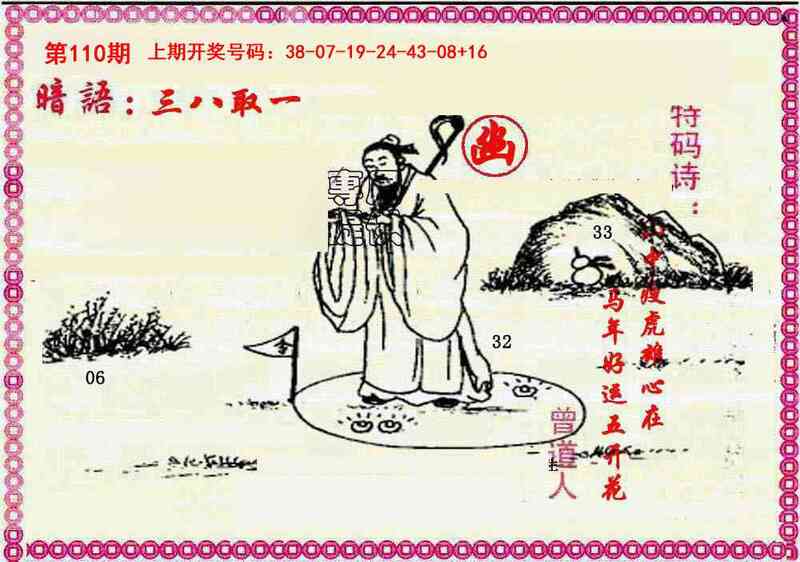 第110期 上期开奖号码：38-07-19-24-43-08+16
暗語：三八取一
特码诗：
中瘦虎雄心在
马年好运五开花
33
32
06
令
曾道人